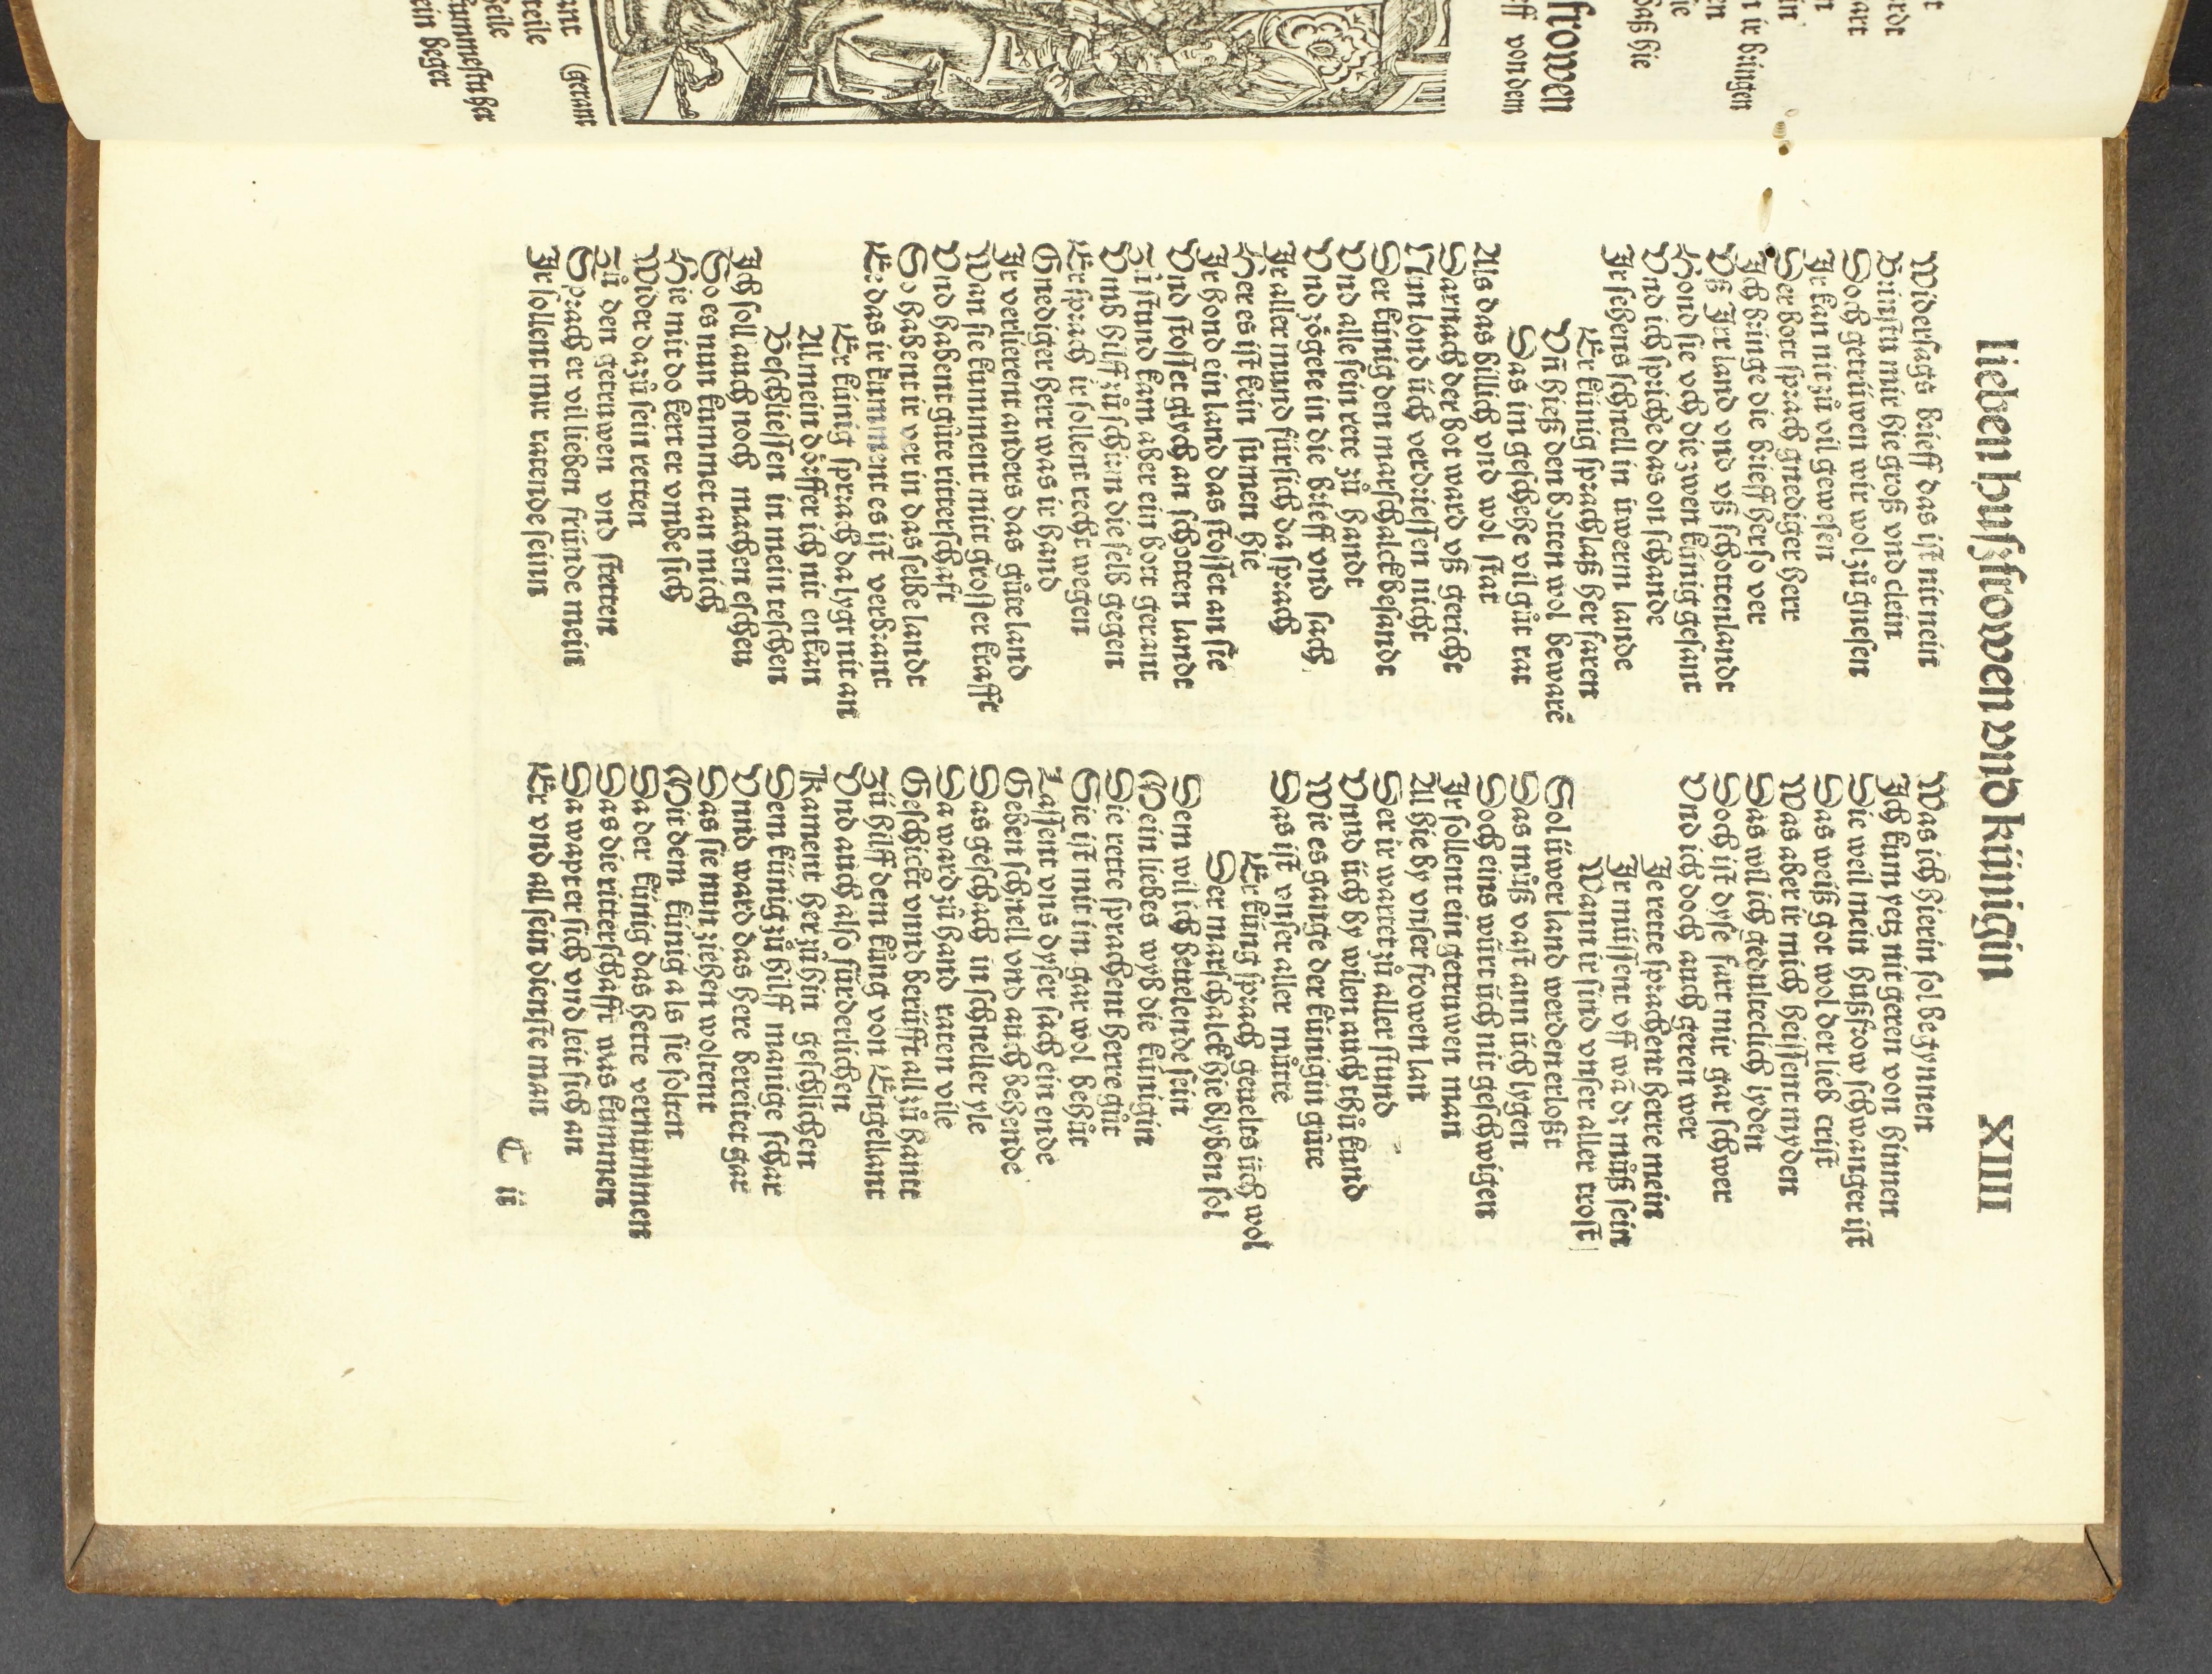 lieben hußfrowen vnd künigin XIIII
Widersags brieff das ist nit nein
Bringstu mir hie groß vnd clein
Doch getrüwen wir wol zů gnesen
Ir kan nit zů vil gewesen
Der bott sprach gnediger herr
Ich bringe die brieff her so verr
Vß Irr land vnd vß schottenlandt
Hond sie vch die zwen künig gesant
Vnd ich spriche das on schande
Ir sehens schnell in üwerm lande
Er künig sprach laß her faren
Vn̄ hieß den botten wol bewarē
Das im geschehe vil gůt rat
Als das billich vnd wol stat
Darnach der bot ward vß gericht
Nun lond üch verdriessen nicht
Der künig den marschalck besandt
Vnd alle sein rete zů handt
Vnd zögete in die brieff vnd sach
Ir aller mund für sich da sprach
Her es ist kein sumen hie
Ir hond ein land das stosset an sie
Vnd stosset glych an schotten landt
Zů stund kam aber ein bott gerant
Vmb hilff zů schirm die selb gegen
Er sprach ir sollent recht wegen
Gnediger herr was ir hand
Ir verlierent anders das gůte land
Wan sie kumment mit grosser krafft
Vnd habent gůte ritterschafft
So habent ir ver in das selbe landt
Ee das ir kumment es ist verbrant
Er künig sprach da lygt nit an
Al mein dörffer ich nit enkan
Beschliessen in mein teschen
Ich soll auch noch machen eschen
So es nun kummet an mich
Hie mit do kert er vmbe sich
Wider da zů sein retten
Zů den getruwen vnd stetten
Sprach er vil lieben fründe mein
Ir sollent mir ratende seinn
Was ich hier in sol begynnen
Ich kum yetz nit geren von hinnen
Die weil mein hußfrow schwanger ist
Das weiß got wol der ließ crist
Was aber ir mich heissent myden
Das wil ich gedulteclich lyden
Doch ist dyse fart mir gar schwer
Vnd ich doch auch geren wer
Ie rette sprachent herre mein
Ir müssent vff wā dz můß sein
Wann ir sind vnser aller trost
Sol üwer land werden erlost
Das můß vast ann üch lygen
Doch eins würt üch nit geschwigen
Ir sollent ein getruwen man
Al hie by vnser frowen lan
Der ir wartet zů aller stund
Vnnd üch by wilen auch thů kund
Wie es gange der künigin gůte
Das ist vnser aller můtte
Er küng sprach gerets üch wol
Der marschalck hie blyben sol
Dem wil ich beuelende sein
Mein liebes wyb die künigin
Die rette sprachent herre gůt
Sie ist mit im gar wol behůt
Lassent vns dyser sach ein ende
Geben schnell vnd auch behende
Das geschach in schneller yle
Da ward zů hand raten vile
Geschickt vnnd berůfft all zů hantt
Zů hilff dem küng von Engellant
Vnd auch also fürderlichen
Kament her zů hin geschlichen
Dem künig zů hilff manige schar
Vnnd ward das here bereitet gar
Das sie nun ziehen woltent
Mit dem künig als sie solten
Da der künig das herre vernummen
Das die ritterschafft was kummen
Da wapnet er sich vnd leit sich an
Er vnd all sein dienstte man
C ii
frowen